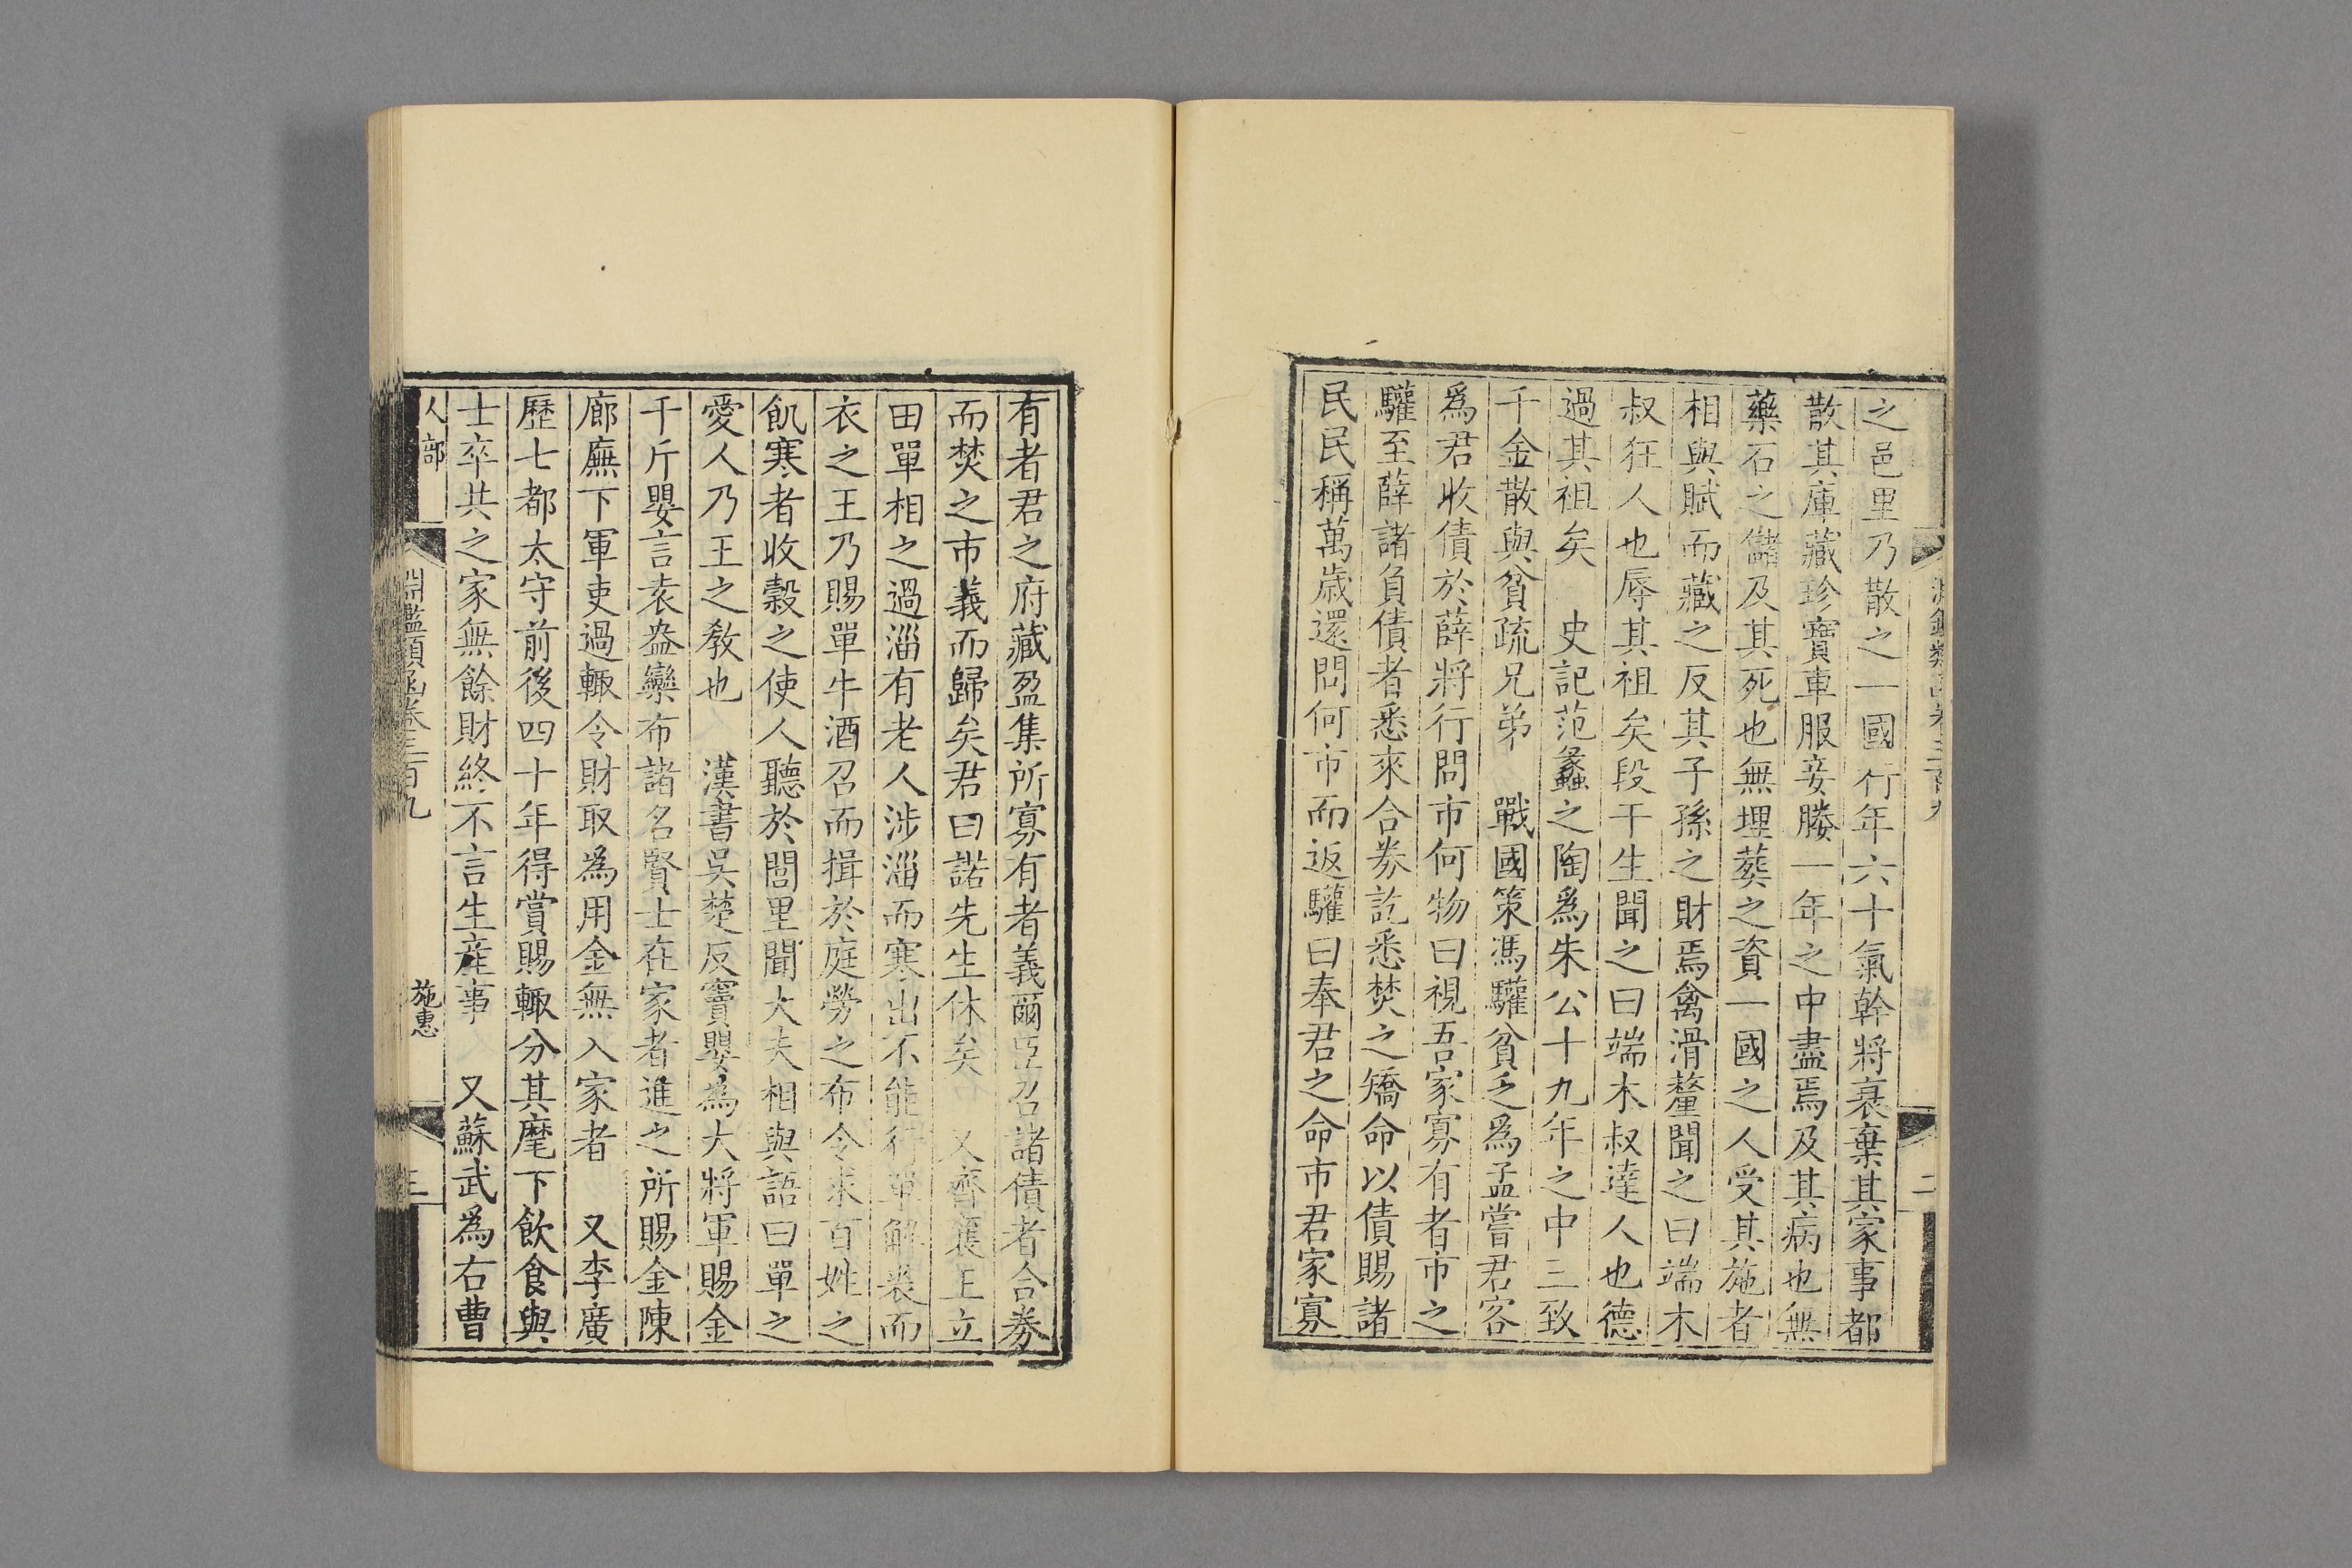 之邑里乃散之一國行年六十氣幹將衰棄其家事都
散其庫藏珍寶車服妾媵一年之中盡焉及其病也無
藥石之儲及其死也無埋葬之資一國之人受其施者
相與賦而藏之反其子孫之財焉禽滑釐聞之曰端木
叔狂人也辱其祖矣段干生聞之曰端木叔達人也德
過其祖矣　史記范蠡之陶爲朱公十九年之中三致
千金散與貧疏兄弟　戰國策馮驩貧乏爲孟嘗君客
爲君收債於薛將行問市何物曰視吾家寡有者市之
驩至薛諸負債者悉來合券訖悉焚之矯命以債賜諸
民民稱萬歲還問何市而返驩曰奉君之命市君家寡
有者君之府藏盈集所寡有者義爾臣召諸債者合券
而焚之市義而歸矣君曰諾先生休矣　又齊襄王立
田單相之過淄有老人涉淄而寒出不能行單解裘而
衣之王乃賜單牛酒召而揖於庭勞之布令求百姓之
飢寒者收穀之使人聽於閭里聞大夫相與語曰單之
愛人乃王之教也　漢書吳楚反竇嬰爲大將軍賜金
千斤嬰言袁盎欒布諸名賢士在家者進之所賜金陳
廊廡下軍吏過輒令財取爲用金無入家者　又李廣
歷七都太守前後四十年得賞賜輒分其麾下飲食與
士卒共之家無餘財終不言生產事　又蘇武爲右曹
人部
淵鑑類函卷三百九
施惠
三
二